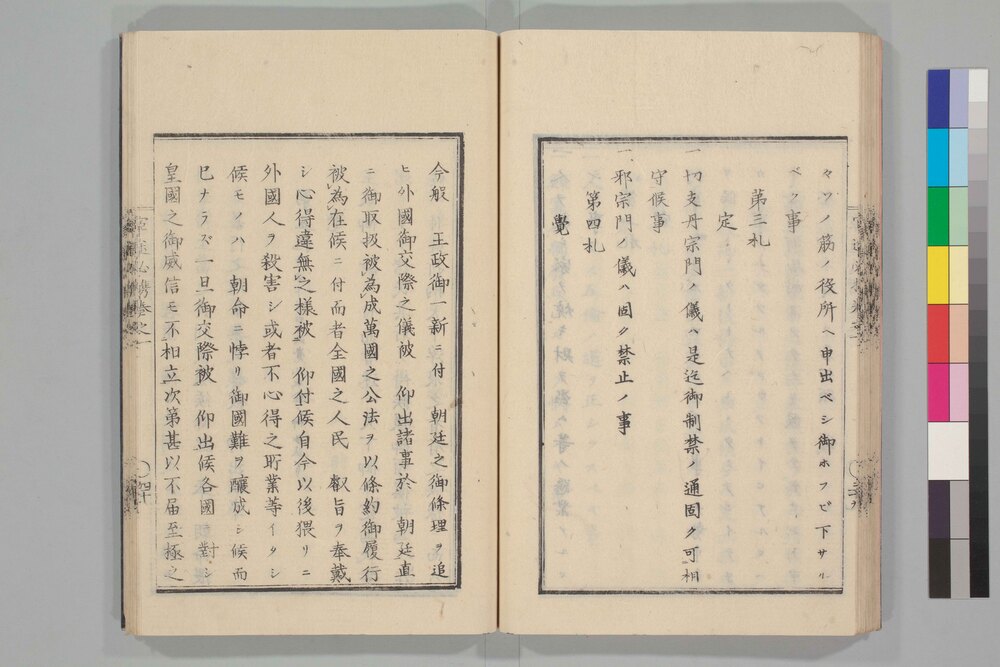 々ソノ筋ノ役所ヘ申出ベシ御ホフビ下サル
ベク事
第三札
定
一 切支丹宗門ノ儀ハ是迄御制禁ノ通固ク可相
守候事
一 邪宗門ノ儀ハ固ク禁止ノ事
第四札
覺
今般 王政御一新ニ付 朝廷之御條理ヲ追
ヒ外國御交際之儀被 仰出諸事於 朝廷直
ニ御取扱被為成萬國之公法ヲ以條約御履行
被為在候ニ付而者全國之人民 叡旨ヲ奉戴
シ心得違無之様被 仰付候自今以後猥リニ
外國人ヲ殺害シ或者不心得之所業等イタシ
候モノハ 朝命ニ悖リ御國難ヲ釀成シ候而
已ナラズ一旦御交際被 仰出候各國 對シ
皇國之御威信モ不相立次第甚以不届至極之